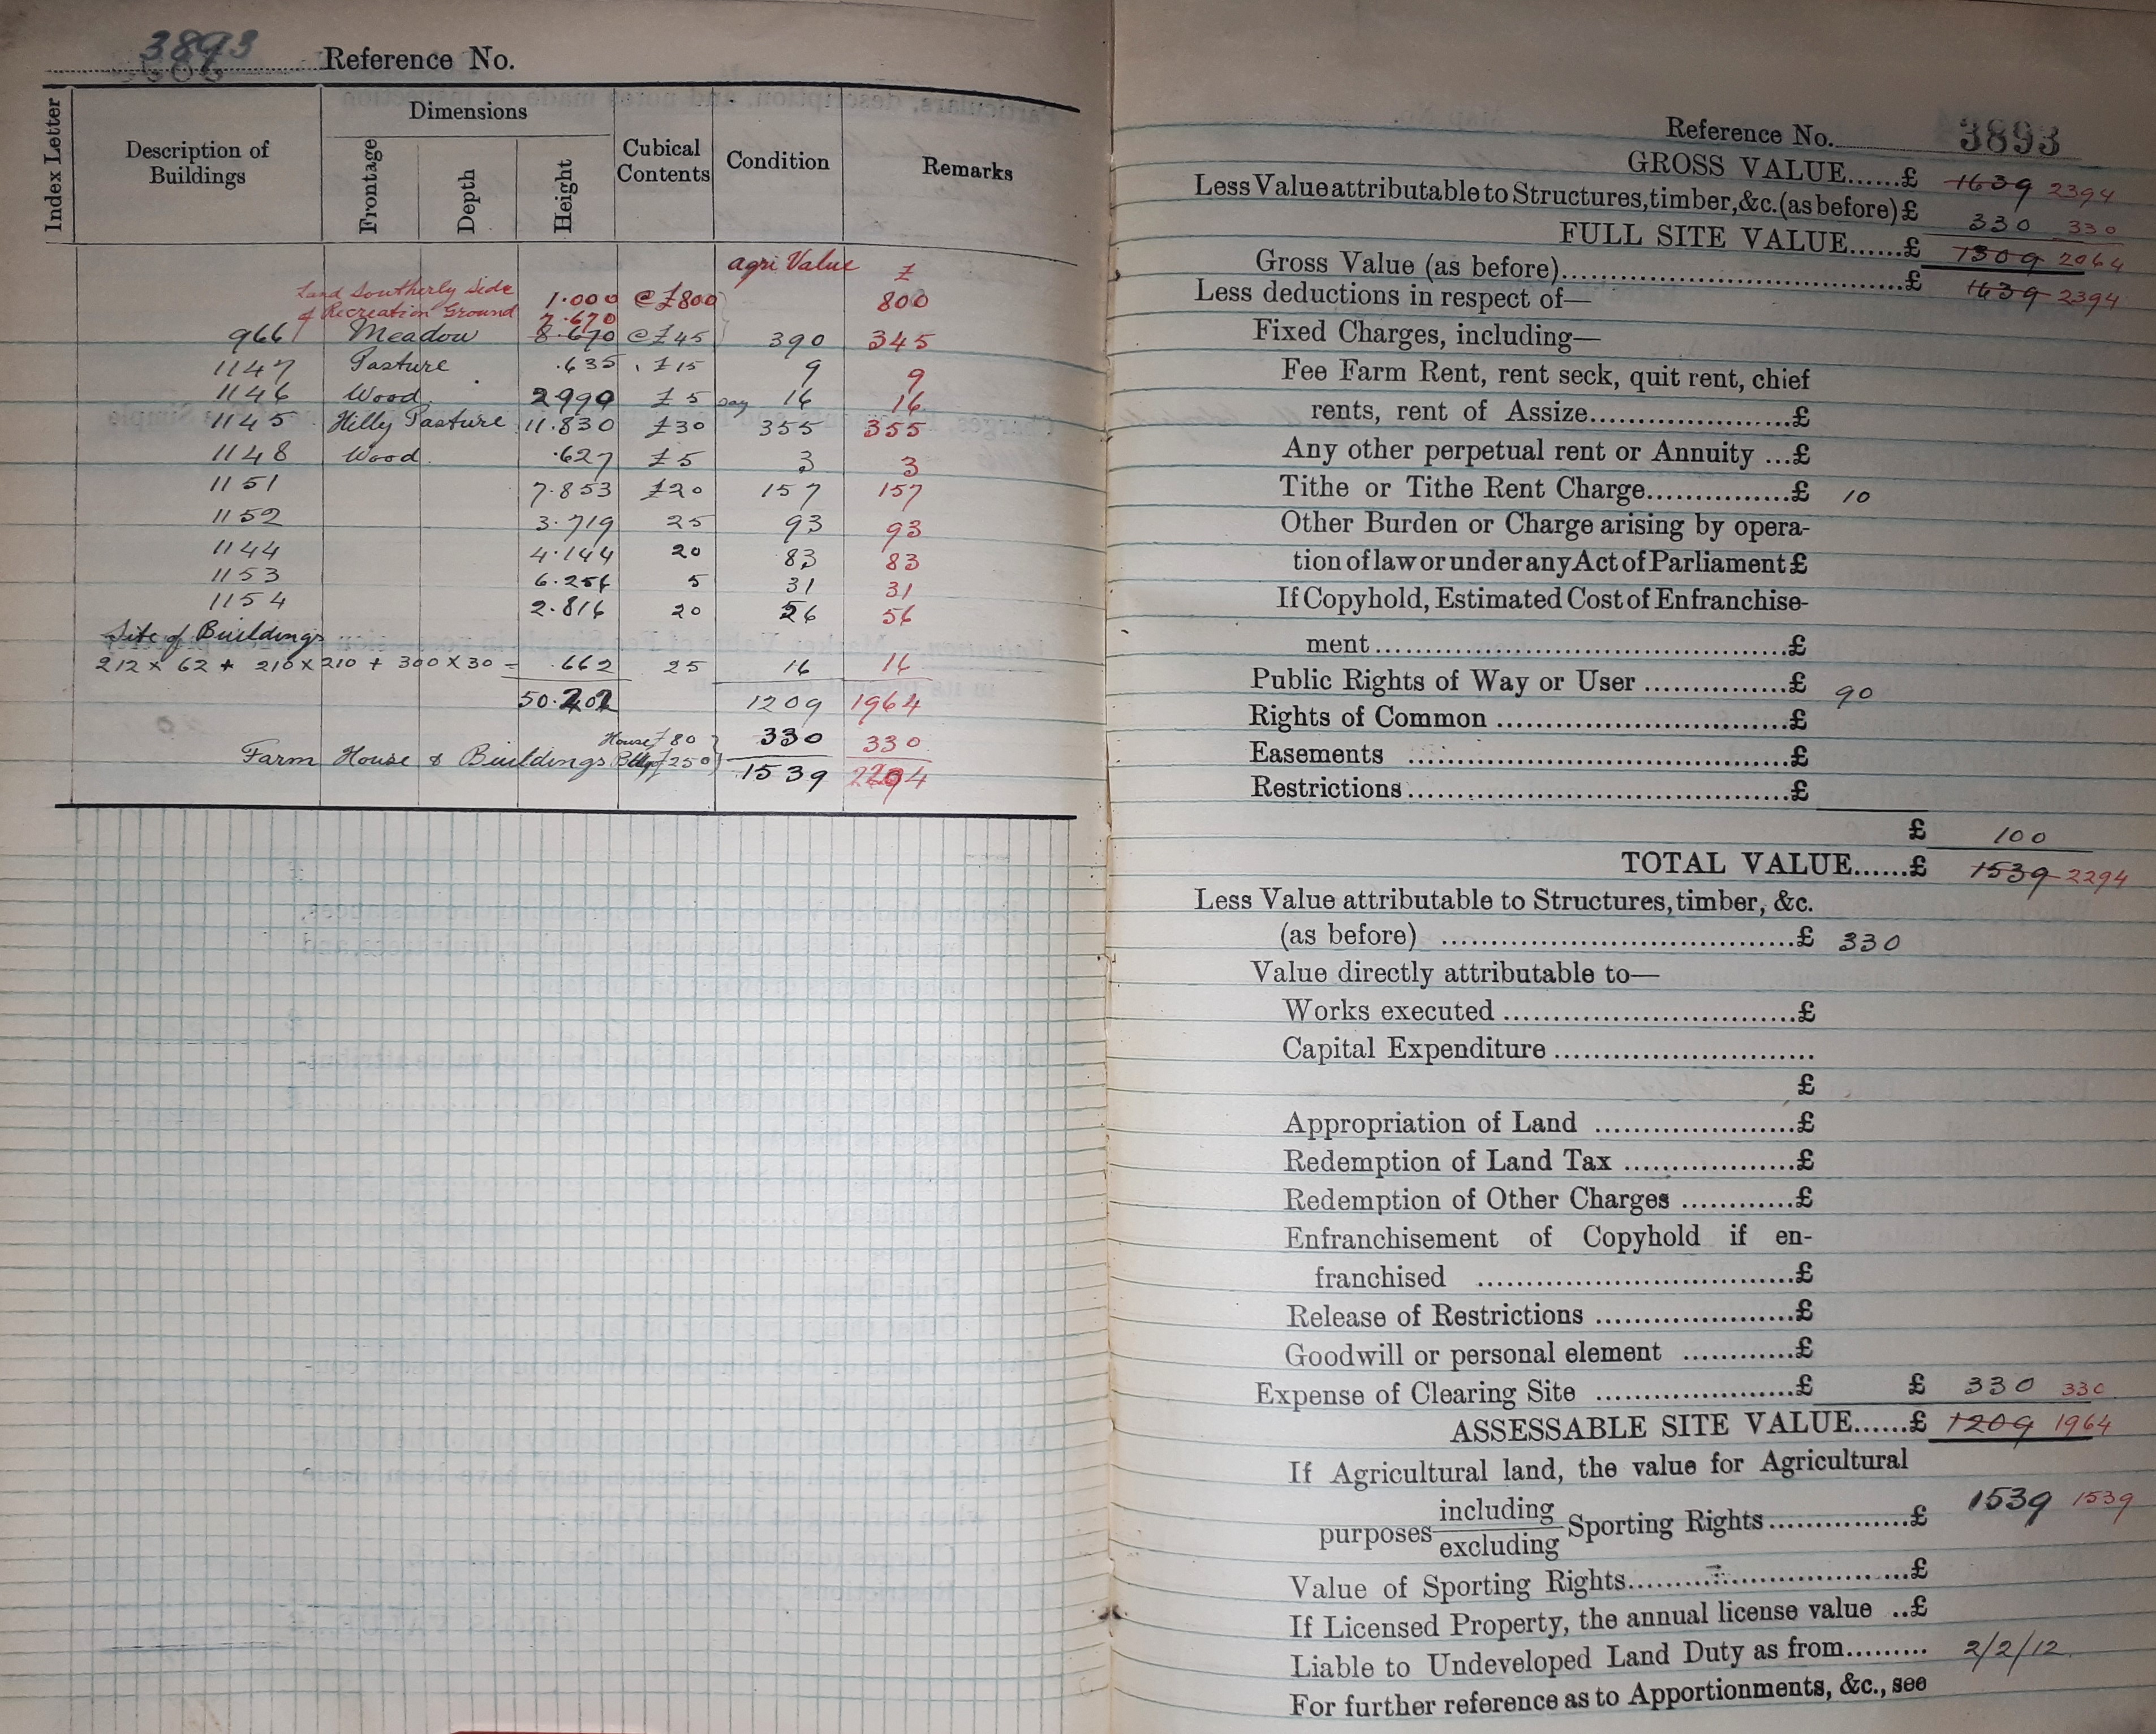 3893 Reference No.
Index Letter
Description of Buildings
Dimensions
Frontage
Depth
Height
Cubical Contents
Condition
Remarks
agri Value £
Land Southerly Side 1.000 @ £800 800
of Recreation Ground 7.670
966 Meadow 8.670 @ £45 390 345
1147 Pasture .635 £15 9 9
1146 Wood. 2990 £5 say 16 16
1145 Hilly Pasture 11.830 £30 355 355
1148 Wood. .627 £5 3 3
1151 7.853 £20 157 157
1152 3.719 25 93 93
1144 4.144 20 83 83
1153 6.256 5 31 31
1154 2.816 20 56 56
Site of Buildings
212 x 62 + 210 x 210 + 300 x 30 = .662 25 16 16
50.202 1209 1964
House £80 330 330
Farm House & Buildings Bldgs £250 1539 2294
Reference No. 3893
GROSS VALUE......£ 1639 2394
Less Value attributable to Structures, timber, &c. (as before) £ 330 330
FULL SITE VALUE......£ 1309 2064
Gross Value (as before)..........£ 1639 2394
Less deductions in respect of—
Fixed Charges, including—
Fee Farm Rent, rent seck, quit rent, chief
rents, rent of Assize..........£
Any other perpetual rent or Annuity ...£
Tithe or Tithe Rent Charge..........£ 10
Other Burden or Charge arising by opera-
tion of law or under any Act of Parliament £
If Copyhold, Estimated Cost of Enfranchise-
ment..........£
Public Rights of Way or User..........£ 90
Rights of Common..........£
Easements..........£
Restrictions..........£
£ 100
TOTAL VALUE......£ 1539 2294
Less Value attributable to Structures, timber, &c.
(as before)..........£ 330
Value directly attributable to—
Works executed..........£
Capital Expenditure..........
£
Appropriation of Land..........£
Redemption of Land Tax..........£
Redemption of Other Charges..........£
Enfranchisement of Copyhold if en-
franchised..........£
Release of Restrictions..........£
Goodwill or personal element..........£
Expense of Clearing Site..........£ £ 330 330
ASSESSABLE SITE VALUE......£ 1209 1964
If Agricultural land, the value for Agricultural
purposes including excluding Sporting Rights..........£ 1539 1539
Value of Sporting Rights..........£
If Licensed Property, the annual license value ..£
Liable to Undeveloped Land Duty as from......... 2/2/12.
For further reference as to Apportionments, &c., see